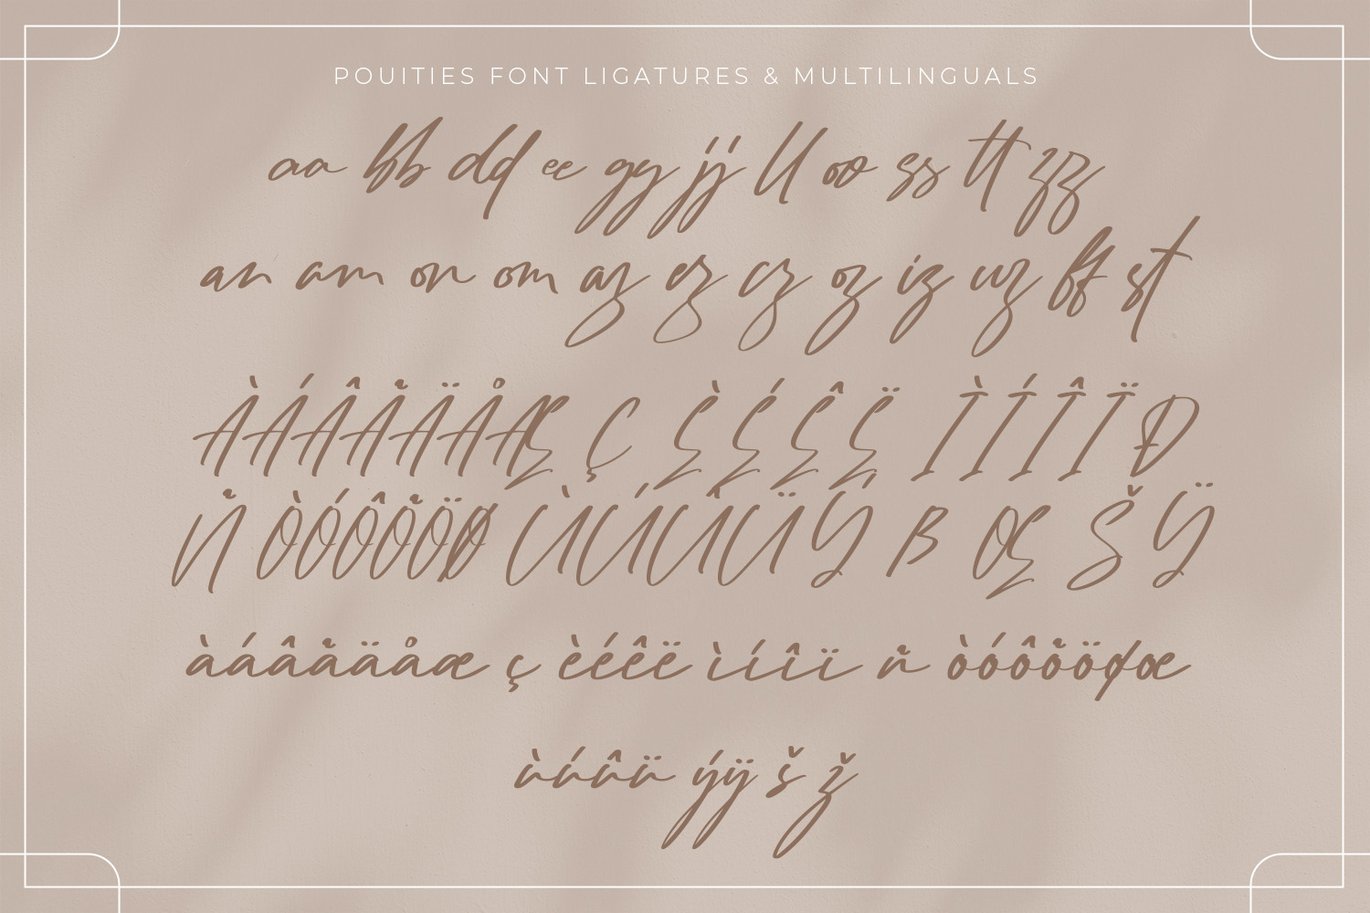 POUITIES FONT LIGATURES & MULTILINGUALS
aa bb dd ee gg jj ll oo ss tt zz
an am on om az ez cz oz iz uz ff st
ÀÁÂÃÄÅÆ Ç ÈÉÊË ÌÍÎÏ Ð
Ñ ÒÓÔÕÖØ ÙÚÛÜÝ B Œ Š Ÿ
àáâãäåæ ç èéêë ìíîï ñ òóôõöøœ
ùúûü ýÿ š ž